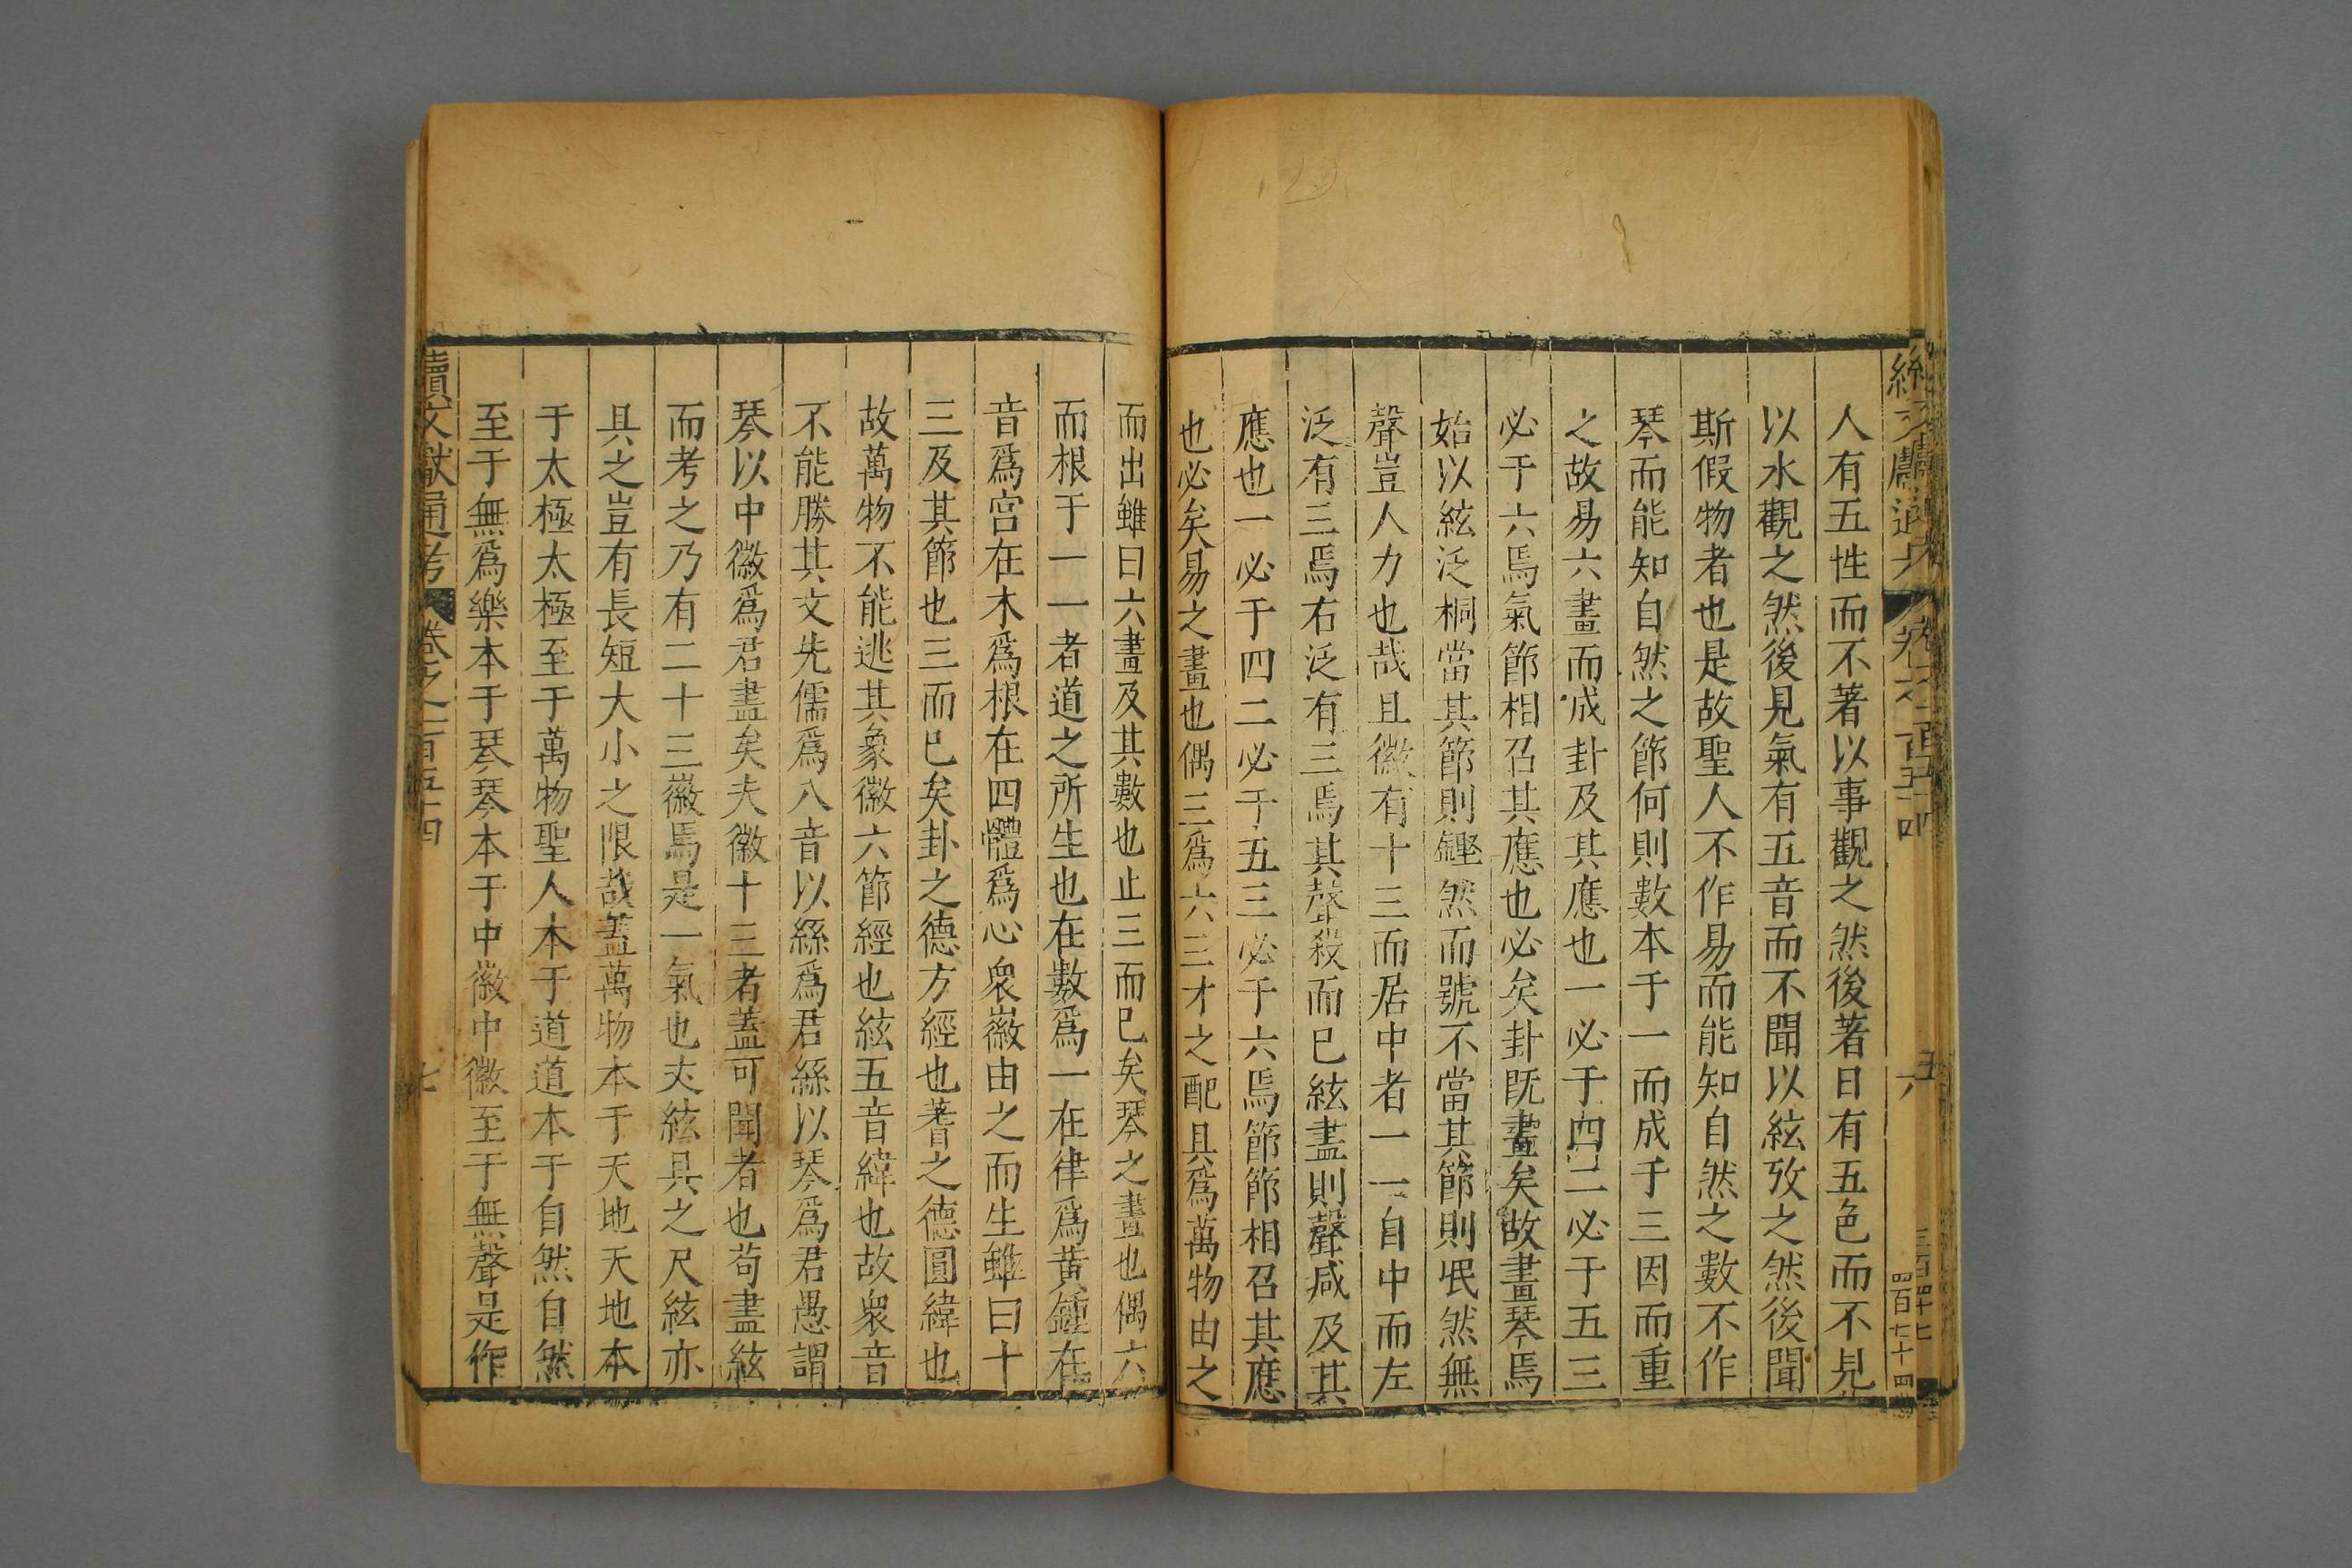 人有五性而不著以事觀之然後著日有五色而不見
以水觀之然後見氣有五音而不聞以絃攷之然後聞
斯假物者也是故聖人不作易而能知自然之數不作
琴而能知自然之節何則數本于一而成于三因而重
之故易六畫而成卦及其應也一必于四二必于五三
必于六焉氣節相召其應也必矣卦既畫矣故畫琴焉
始以絃泛桐當其節則鏗然而號不當其節則泯然無
聲豈人力也哉且徽有十三而居中者一一自中而左
泛有三焉右泛有三焉其聲殺而已絃盡則聲減及其
應也一必于四二必于五三必于六焉節節相召其應
也必矣易之畫也偶三爲六三才之配具爲萬物由之
而出雖曰六畫及其數也止三而已矣琴之畫也偶六
而根于一一者道之所生也在數爲一在律爲黃鍾在
音爲宮在木爲根在四體爲心衆徽由之而生雖曰十
三及其節也三而已矣卦之德方經也蓍之德圓緯也
故萬物不能逃其象徽六節經也絃五音緯也故衆音
不能勝其文先儒爲八音以絲爲君絲以琴爲君愚謂
琴以中徽爲君盡矣夫徽十三者蓋可聞者也苟盡絃
而考之乃有二十三徽焉是一氣也夫絃具之尺絃亦
具之豈有長短大小之限哉蓋萬物本于天地天地本
于太極太極至于萬物聖人本于道道本于自然自然
至于無爲樂本于琴琴本于中徽中徽至于無聲是作
續文獻通考 卷之一百五十四 七